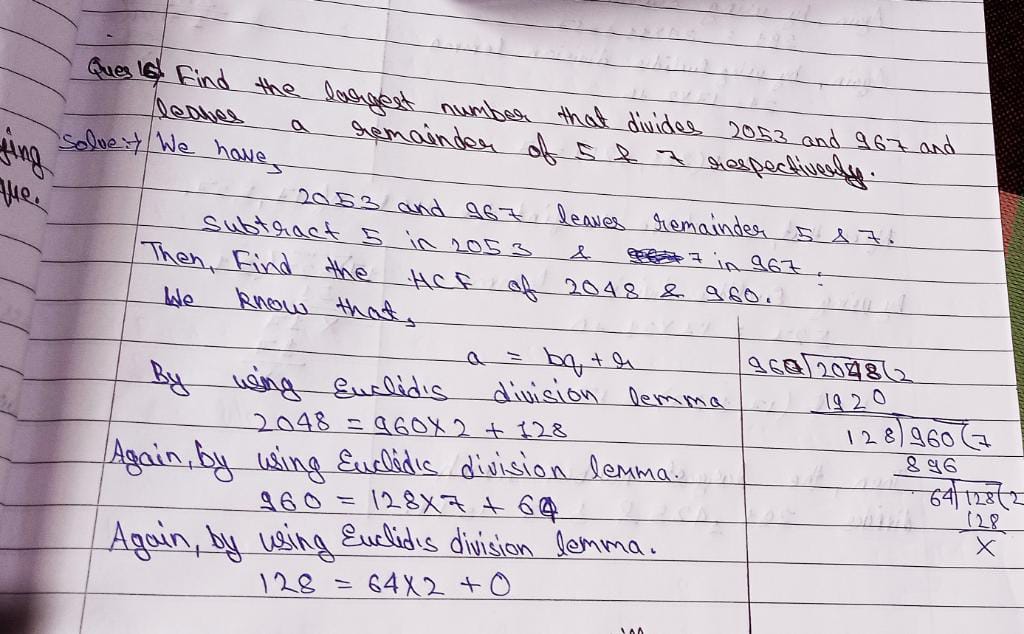 Ques 16 Find the largest number that divides 2053 and 967 and
leaves a remainder of 5 & 7 respectively.
Solve:→ We have,
2053 and 967 leaves remainder 5 & 7.
Subtract 5 in 2053 & 7 in 967.
Then, Find the HCF of 2048 & 960.
We know that,
a = bq + r
By using Euclid's division lemma
2048 = 960×2 + 128
Again, by using Euclid's division lemma.
960 = 128×7 + 64
Again, by using Euclid's division lemma.
128 = 64×2 + 0
960)2048(2
1920
128)960(7
896
64)128(2
128
×